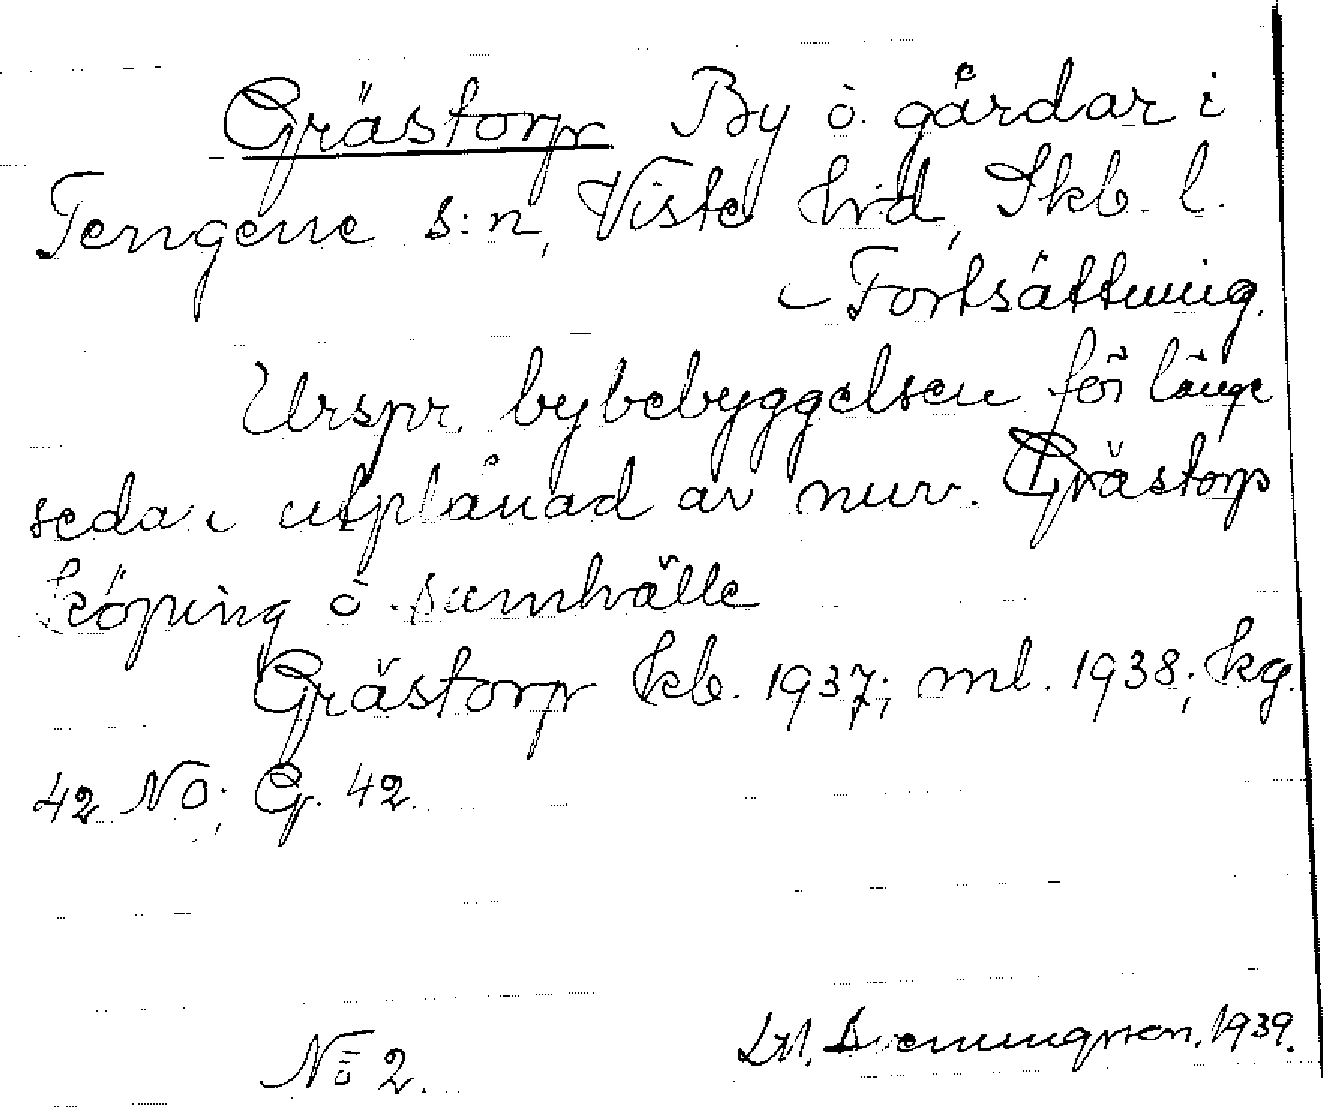 Grästorp By o. gårdar i
Tengene s:n, Viste hrd, Skb. l.
– Fortsättning.
Urspr. bybebyggelsen för länge
sedan utplånad av nuv. Grästorp
köping o. samhälle
Grästorp kb. 1937; ml. 1938; kg.
42 NO; G. 42.
No 2.
1939.